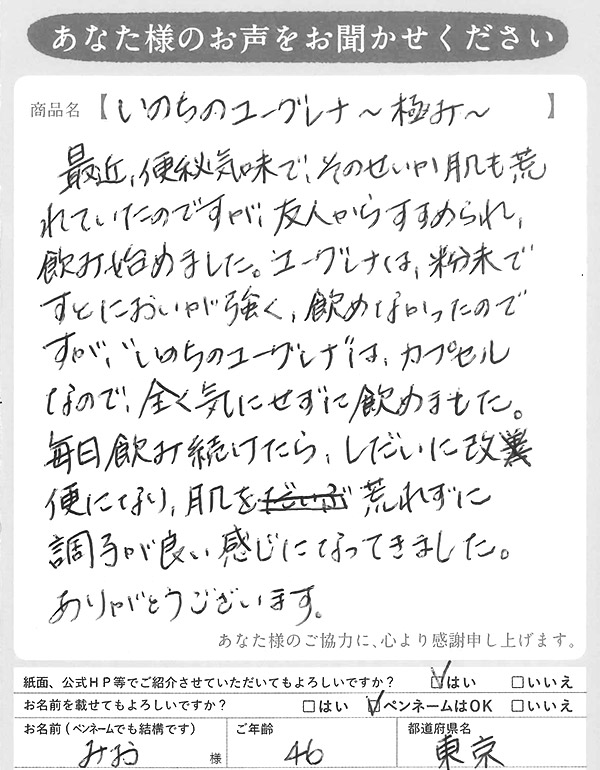 あなた様のお声をお聞かせください
商品名【いのちのユーグレナ～極み～】
最近、便秘気味で、そのせいか肌も荒
れていたのですが、友人からすすめられ、
飲み始めました。ユーグレナは、粉末で
すとにおいが強く、飲めなかったので
すが、"いのちのユーグレナ"は、カプセル
なので、全く気にせずに飲めました。
毎日飲み続けたら、しだいに改
便になり、肌をだいぶ荒れずに
調子が良い感じになってきました。
ありがとうございます。
あなた様のご協力に、心より感謝申し上げます。
紙面、公式HP等でご紹介させていただいてもよろしいですか? ☑はい □いいえ
お名前を載せてもよろしいですか? □はい ☑ペンネームはOK □いいえ
お名前(ペンネームでも結構です) ご年齢 都道府県名
みお 様 46 東京